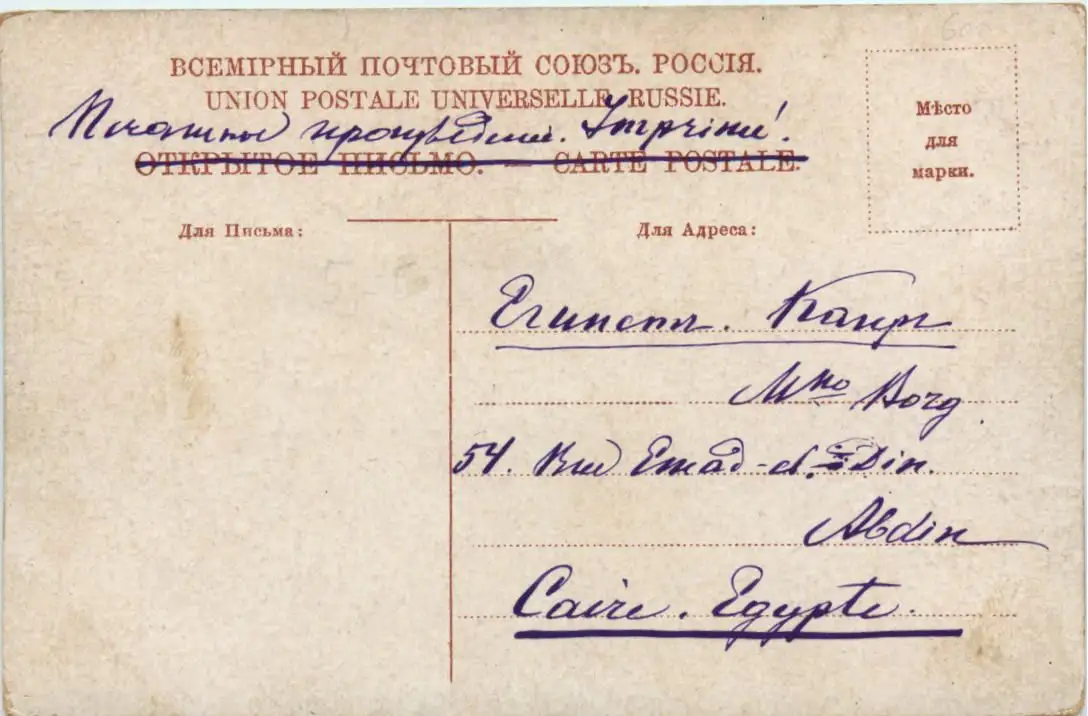 ВСЕМІРНЫЙ ПОЧТОВЫЙ СОЮЗЪ. РОССІЯ.
UNION POSTALE UNIVERSELLE, RUSSIE.
Печатное произведеніе. Imprimé.
ОТКРЫТОЕ ПИСЬМО. — CARTE POSTALE.
Мѣсто
для
марки.
Для Письма:
Для Адреса:
Египетъ. Каиръ
Borg
54. Rue Emad-el-Din.
Abdin
Caire. Egypte.